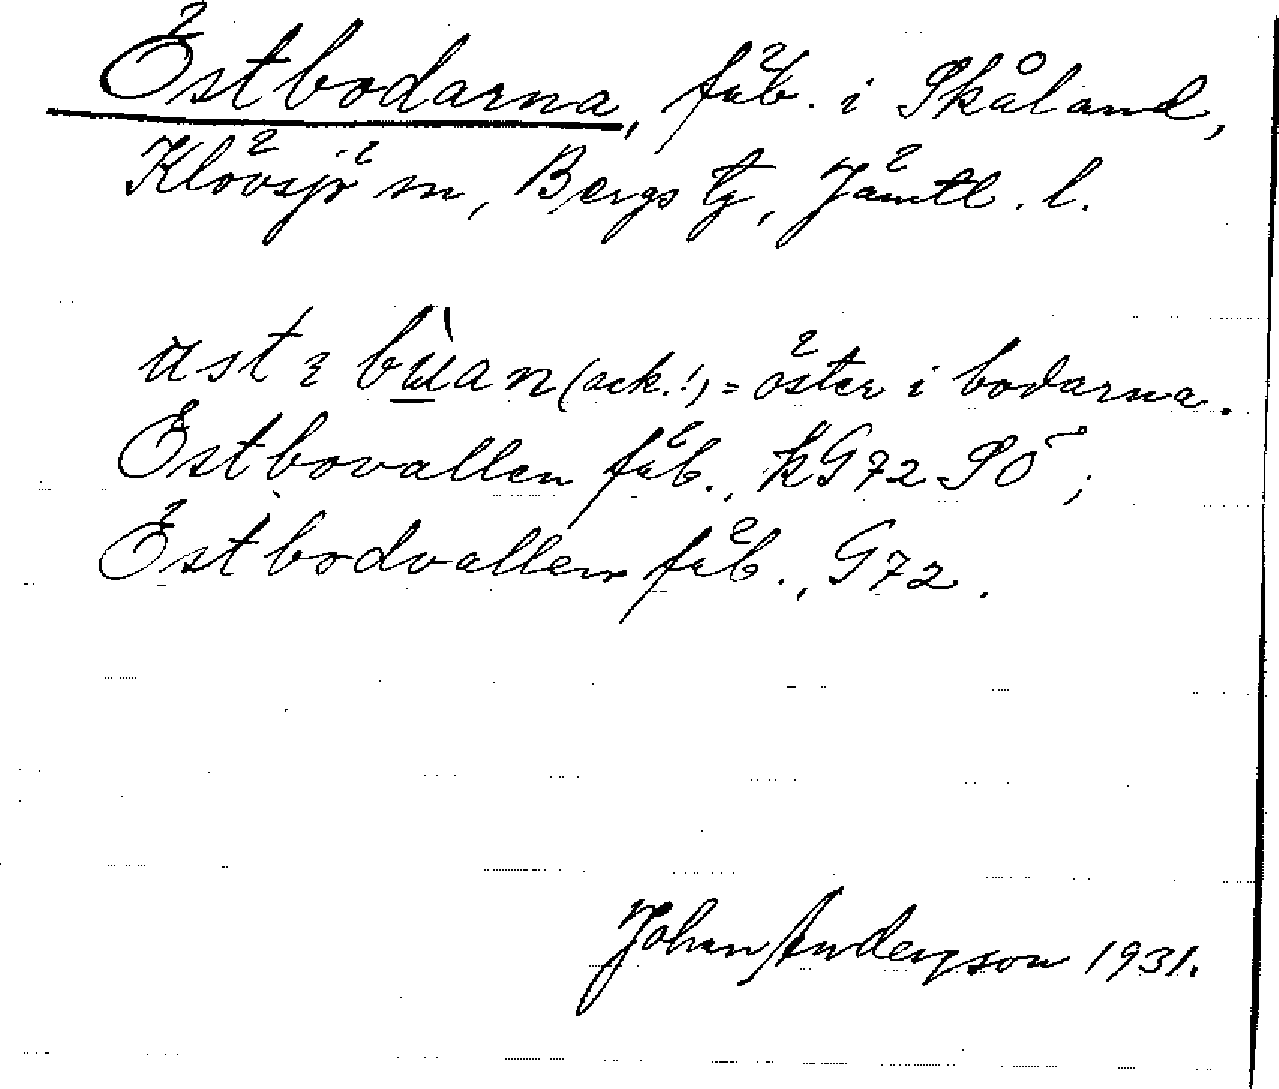 Östbodarna, fäb. i Skåland,
Klövsjö sn, Bergs tg, Jämtl. l.
bùan (ack.!) = öster i bodarna.
Östbovallen fäb., kG72 SO;
Östbodvallen fäb., G72.
Johan Anderson 1931.